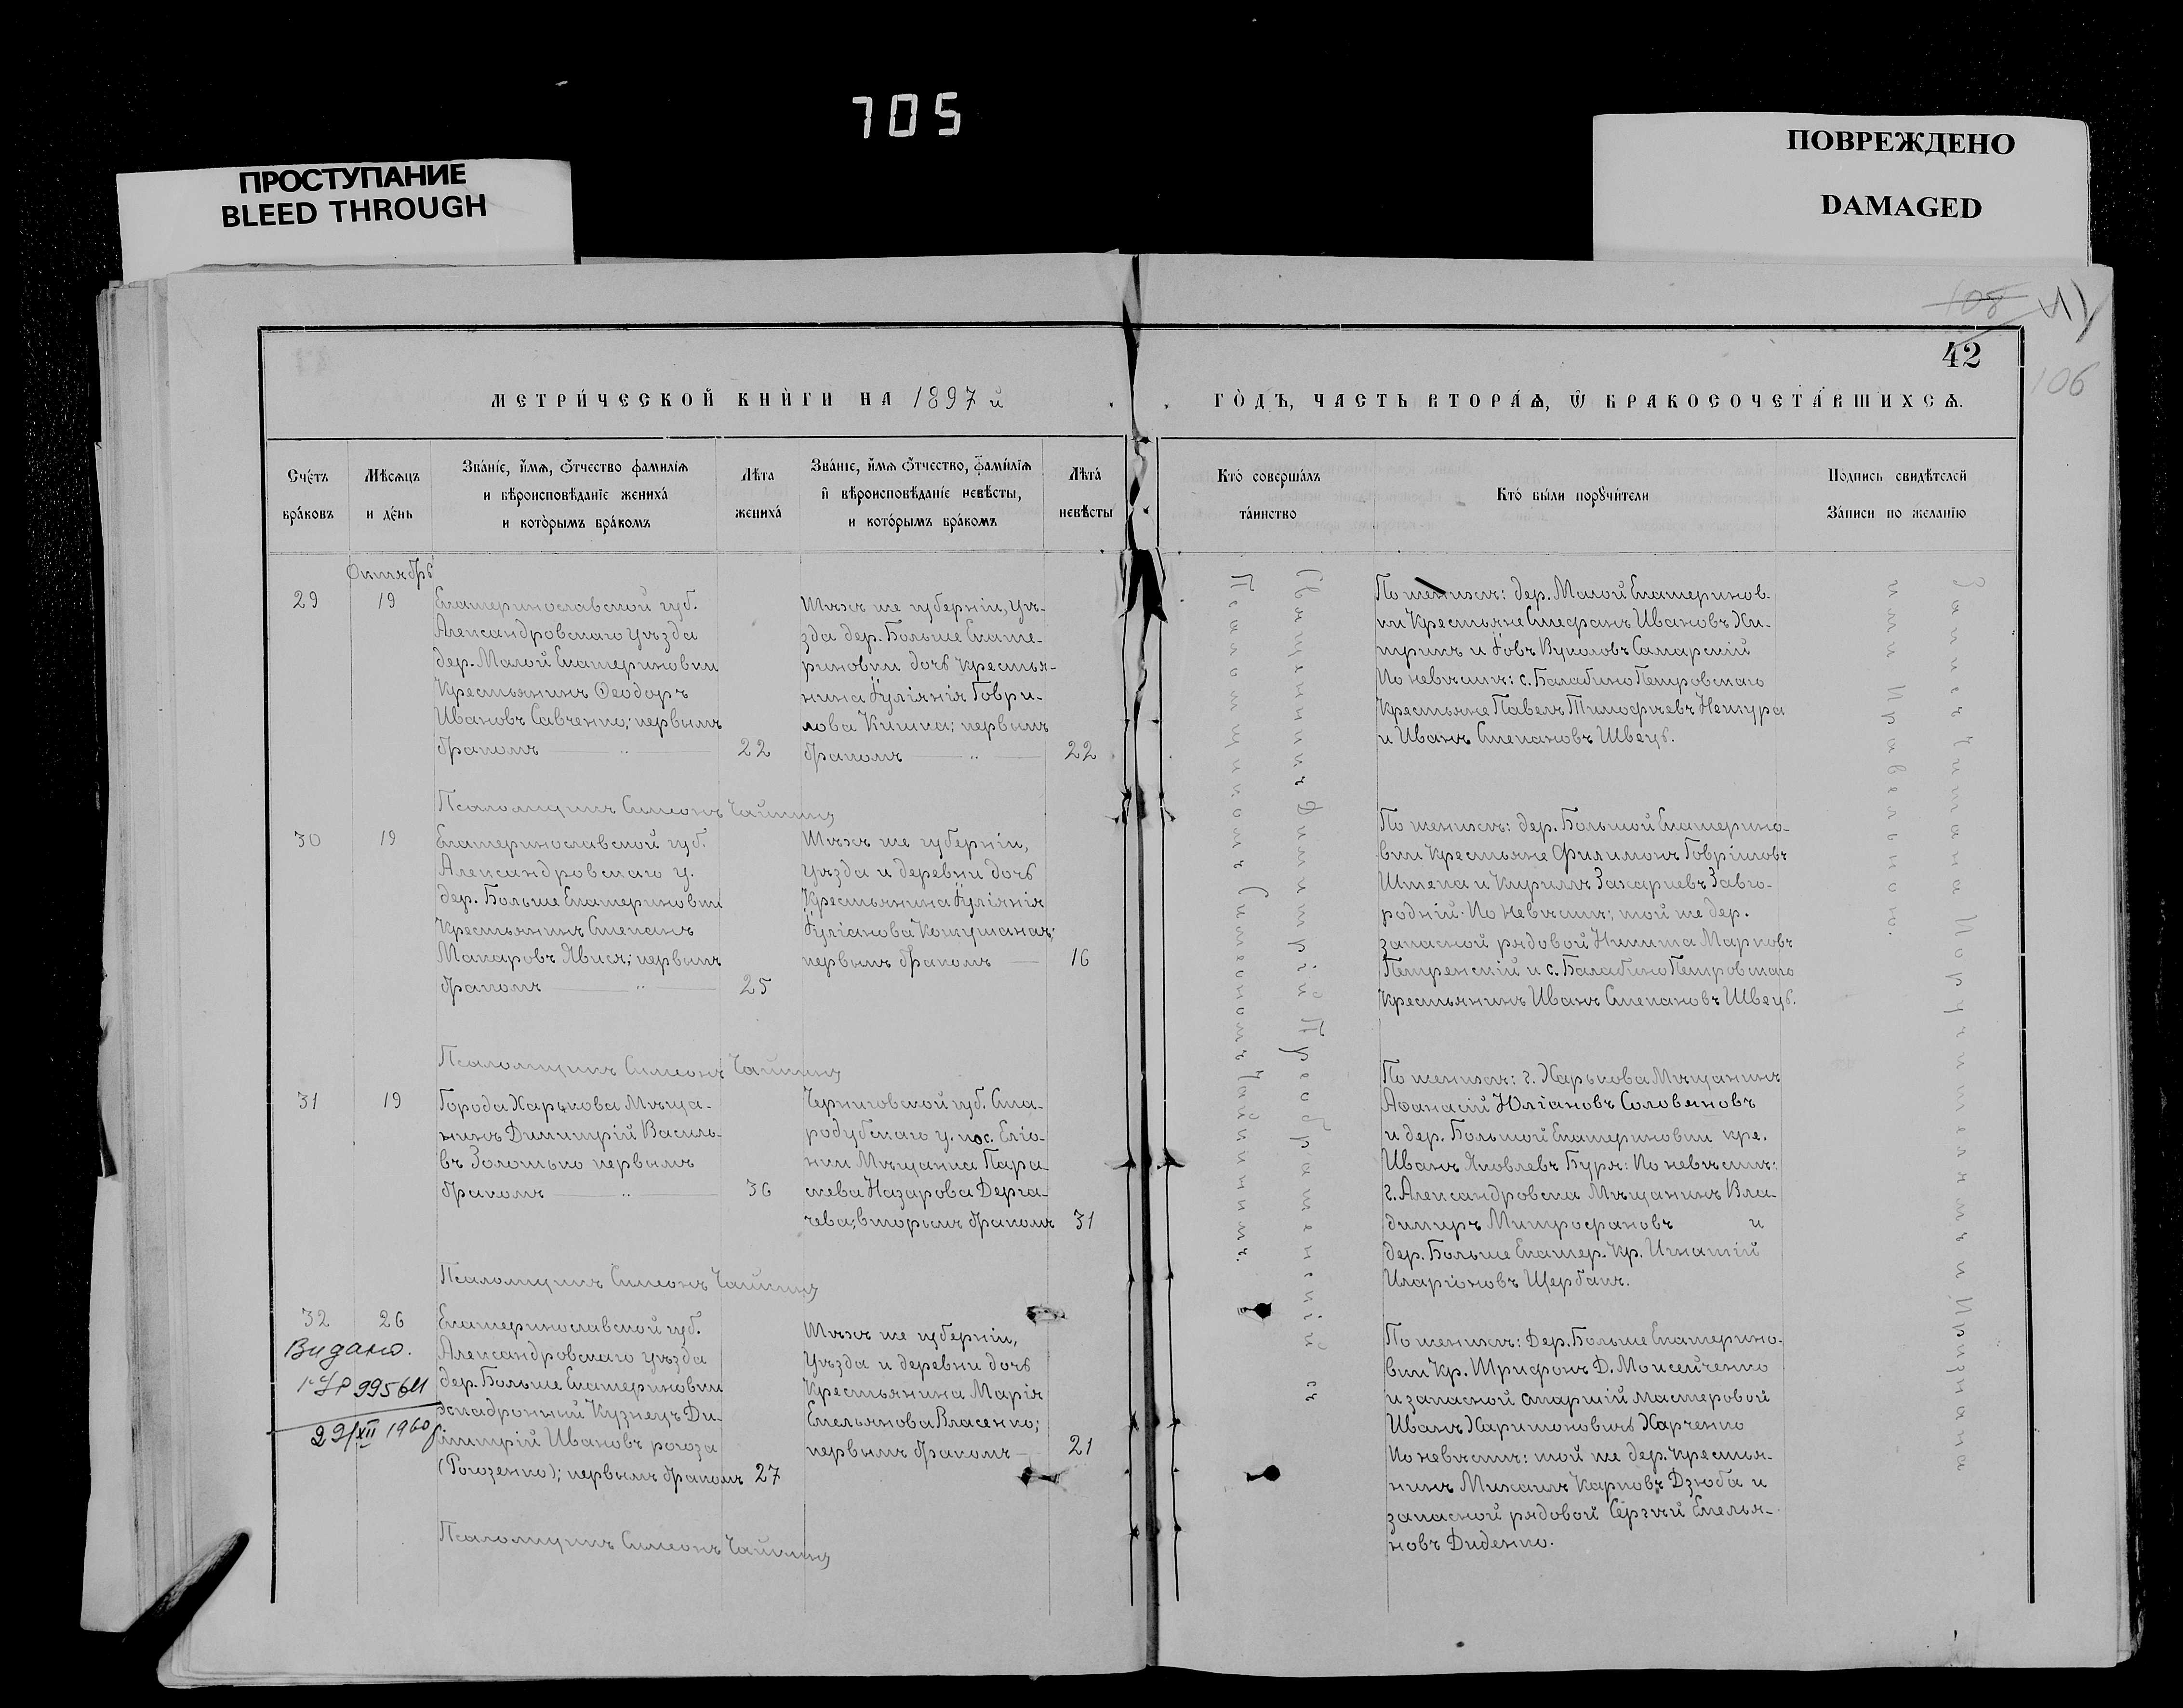 705
ПРОСТУПАНИЕ
BLEED THROUGH
ПОВРЕЖДЕНО
DAMAGED
108
42
106
МЕТРИ́ЧЕСКОЙ КНИ́ГИ НА 1897 й
ГО́ДЪ, ЧАСТЬ ВТОРА́Ѧ, Ѡ БРАКОСОЧЕТА́ВШИХСѦ.
Сче́тъ бра́ковъ
Мѣсѧцъ и де́нь
Зва́нїе, и́мѧ, ѻ́тчество фамилїѧ
и вѣроисповѣданїе жениха́
и кото́рымъ бра́комъ
Лѣта жениха́
Зва́нїе, и́мѧ ѻ́тчество, фами́лїѧ
и҆ вѣроисповѣда́нїе невѣ́сты,
и кото́рымъ бра́комъ
Лѣта́ невѣ́сты
Кто́ соверша́лъ та́инство
Кто́ бы́ли порꙋчи́тели
Подпись свидѣ́телей
За́писи по жела́нїю
Октябрь
29
19
Екатеринославской губ.
Александровскаго уѣзда
дер. Малой Екатериновки
Крестьянинъ Ѳеодоръ
Ивановъ Савченко; первымъ
бракомъ
22
Тѣхъ же губерніи, уѣ-
зда дер. Больше Екате-
риновки дочь Крестья-
нина Іуліянія Гаври-
лова Кишка; первымъ
бракомъ
22
По женихѣ: дер. Малой Екатеринов-
ки Крестьяне Стефанъ Ивановъ Хи-
трикъ и Іовъ Вуколовъ Самарскій
По невѣстѣ: с. Балабино Петровскаго
Крестьяне Павелъ Тимофѣевъ Нежура
и Иванъ Степановъ Швецъ.
Псаломщикъ Симеонъ Чайкинъ
30
19
Екатеринославской губ.
Александровскаго у.
дер. Больше Екатериновки
Крестьянинъ Степанъ
Макаровъ Явися; первымъ
бракомъ
25
Тѣхъ же губерніи,
уѣзда и деревни дочь
Крестьянина Іуліянія
Іуліанова Кожушаная;
первымъ бракомъ
16
По женихѣ: дер. Большой Екатерино-
вки Крестьяне Филимонъ Гавріиловъ
Штепа и Кириллъ Захаріевъ Заво-
родній. По невѣстѣ; той же дер.
запасной рядовой Никита Марковъ
Петренскій и с. Балабино Петровскаго
Крестьянинъ Иванъ Степановъ Швецъ.
Псаломщикъ Симеонъ Чайкинъ
31
19
Города Харькова Мѣща-
нинъ Димитрій Василь-
въ Золотько первымъ
бракомъ
36
Черниговской губ. Ста-
родубскаго у. пос. Еліо-
нки Мѣщанка Пара-
скева Назарова Дерга-
чева; вторымъ бракомъ
31
По женихѣ: г. Харькова Мѣщанинъ
Аѳанасій Юліановъ Соловяновъ
и дер. Большой Екатериновки кре.
Иванъ Яковлевъ Буря: По невѣстѣ:
г. Александровска Мѣщанинъ Вла-
димиръ Митрофановъ и
дер. Больше Екатер. Кр. Игнатій
Иларіоновъ Щербакъ.
Псаломщикъ Симеонъ Чайкинъ
32
26
Видано.
995611
29/XII 1960
Екатеринославской губ.
Александровскаго уѣзда
дер. Больше Екатериновки
эскадронный Кузнецъ Ди-
митрій Ивановъ рогоза
(Рогозенко); первымъ бракомъ
27
Тѣхъ же губерніи,
уѣзда и деревни дочь
Крестьянина Марія
Емельянова Власенко;
первымъ бракомъ
21
По женихѣ: Дер. Больше Екатерино-
вки Кр. Трифонъ Д. Моисейченко
и запасной старшій мастеровой
Иванъ Харитоновичъ Харченко
По невѣстѣ: той же дер. Крестья-
нинъ Михаилъ Карповъ Дзюба и
запасной рядовой Сергѣй Емелья-
новъ Диденко.
Псаломщикъ Симеонъ Чайкинъ
Священникъ Димитрій Преображенскій съ
Псаломщикомъ Симеономъ Чайкинымъ.
Запись Читана Поручителямъ и Признана
ими Правельною.